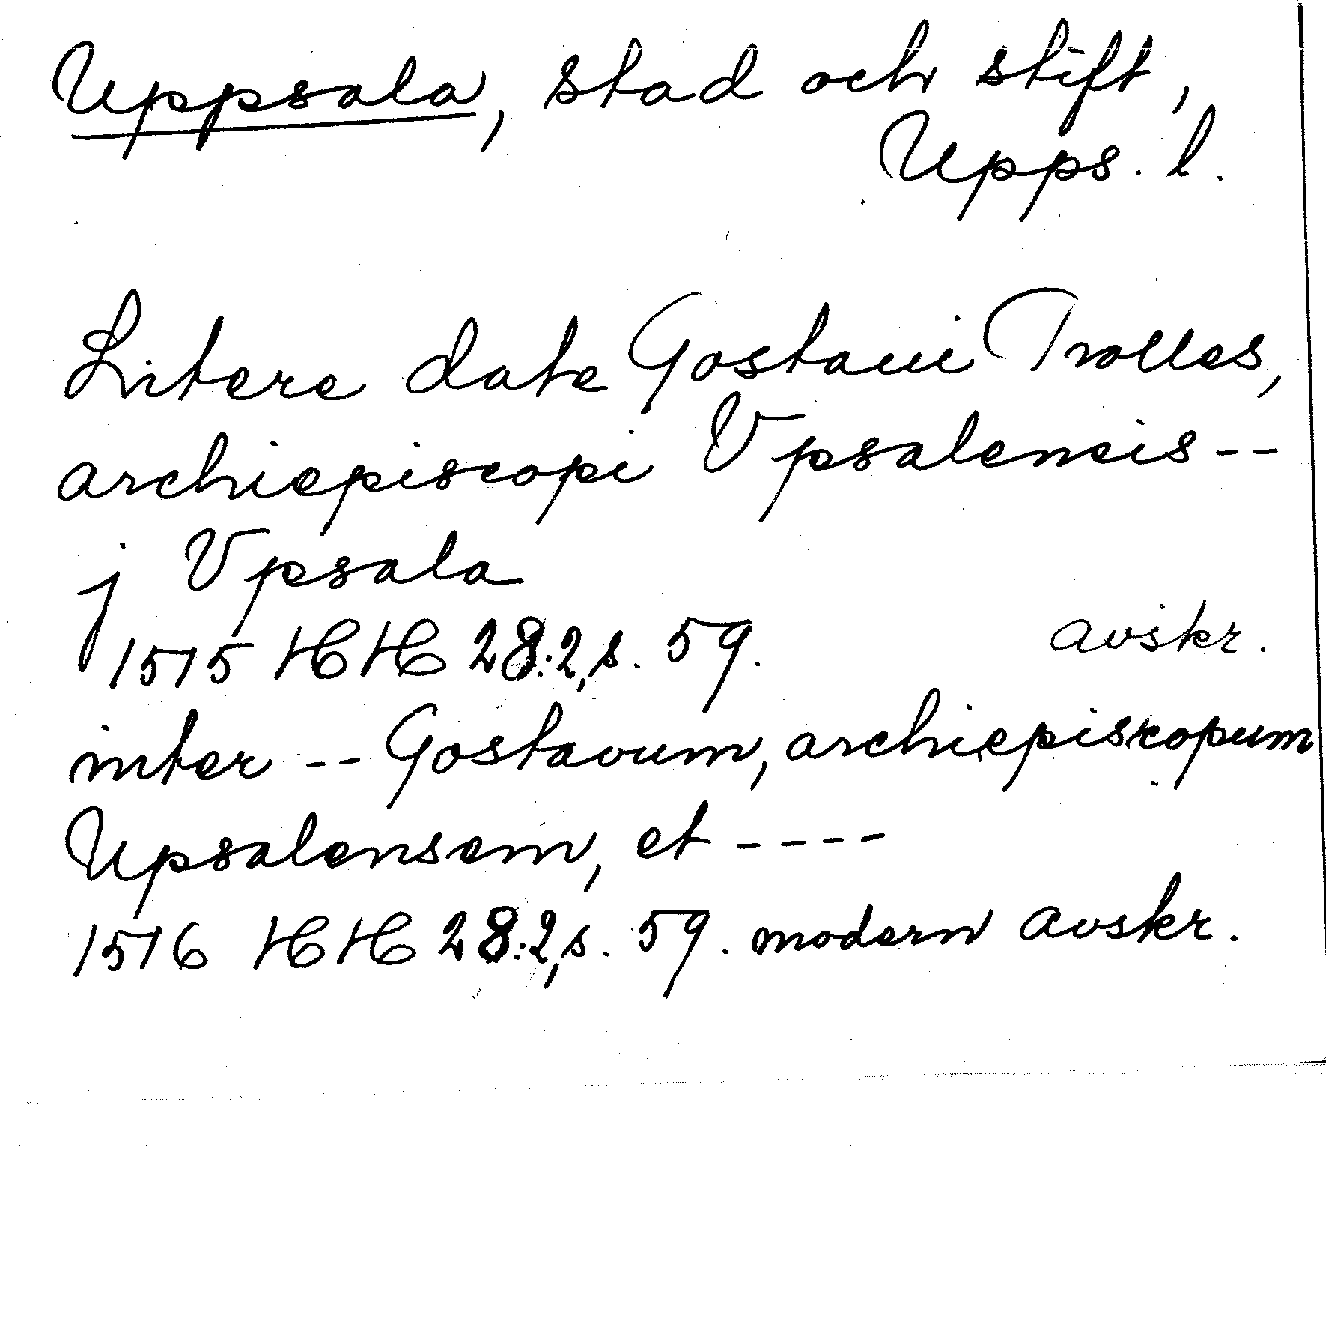 Uppsala, stad och stift,
Upps. l.
Litere date Gostaui Trolles,
archiepiscopi Vpsalensis --
j Vpsala
1515 HH 28:2, s. 59. avskr.
inter -- Gostavum, archiepiscopum
Upsalensem, et ----
1516 HH 28:2, s. 59. modern avskr.